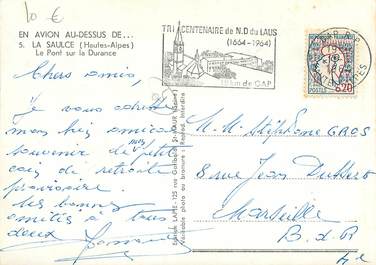 10 €
EN AVION AU-DESSUS DE...
5. LA SAULCE (Hautes-Alpes)
Le Pont sur la Durance
TRI-CENTENAIRE de N.D du LAUS
(1664-1964)
19 km de GAP
POSTES
0,20
Chers amis,
Je vous
mon bien amical
souvenir de mon petit
coin de retraite
provisoire.
Les bonnes
amitiés à tous
deux
Edition LAPIE - 125 rue St-MAUR (Seine)
Véritable photo au bromure : Reprod. Interdite
M. M. Stéphane GROS
8 rue Jean
Marseille
B. d. R